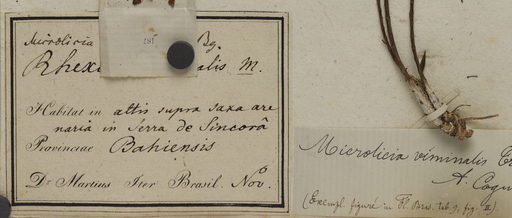 Microlicia Bg.
Rhex alis M.
281
Habitat in altis supra saxa are
naria in Serra de Sincorâ
Provinciae Bahiensis
Dr. Martius Iter Brasil. Nov.
Microlicia viminalis
A. Cogn
(Exempl. figuré in Fl. Bras. tab. 9, fig. II).